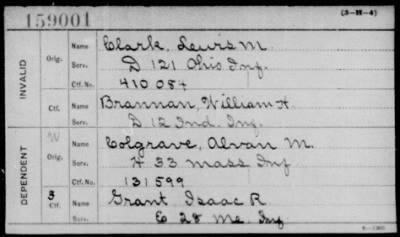 159001
(3-H-4)
INVALID
Orig.
Name Clark, Lewis M.
Serv. D 121 Ohio Inf.
Ctf. No. 410084
Ctf.
Name Brannan, William H.
Serv. D 12 Ind. Inf.
DEPENDENT
W
Orig.
Name Colgrave, Alvan M.
Serv. H 33 Mass Inf
Ctf. No. 131599
3
Ctf.
Name Grant Isaac R.
Serv. E 28 Me. Inf